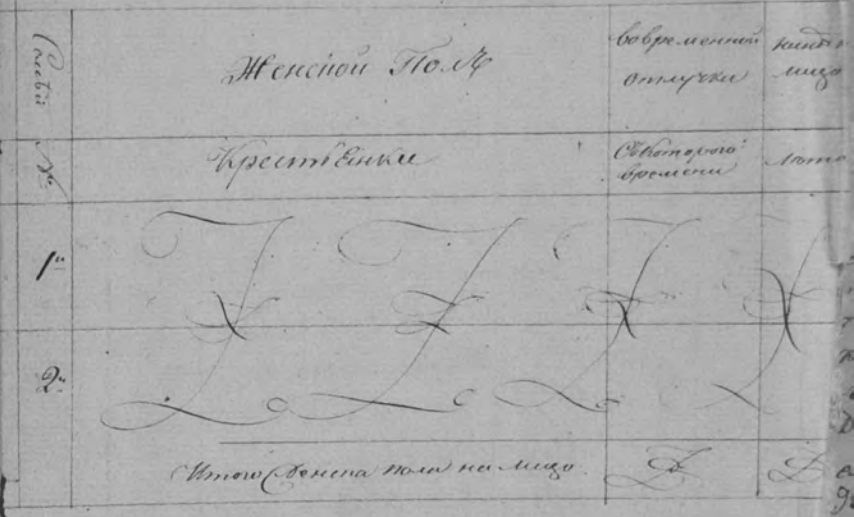 Семьи №
Женской Полъ
во временной
отлучки
лицо
Крестьянки
Съ Которого
времени
Лета
1й
2й
Итого Женска пола на лицо